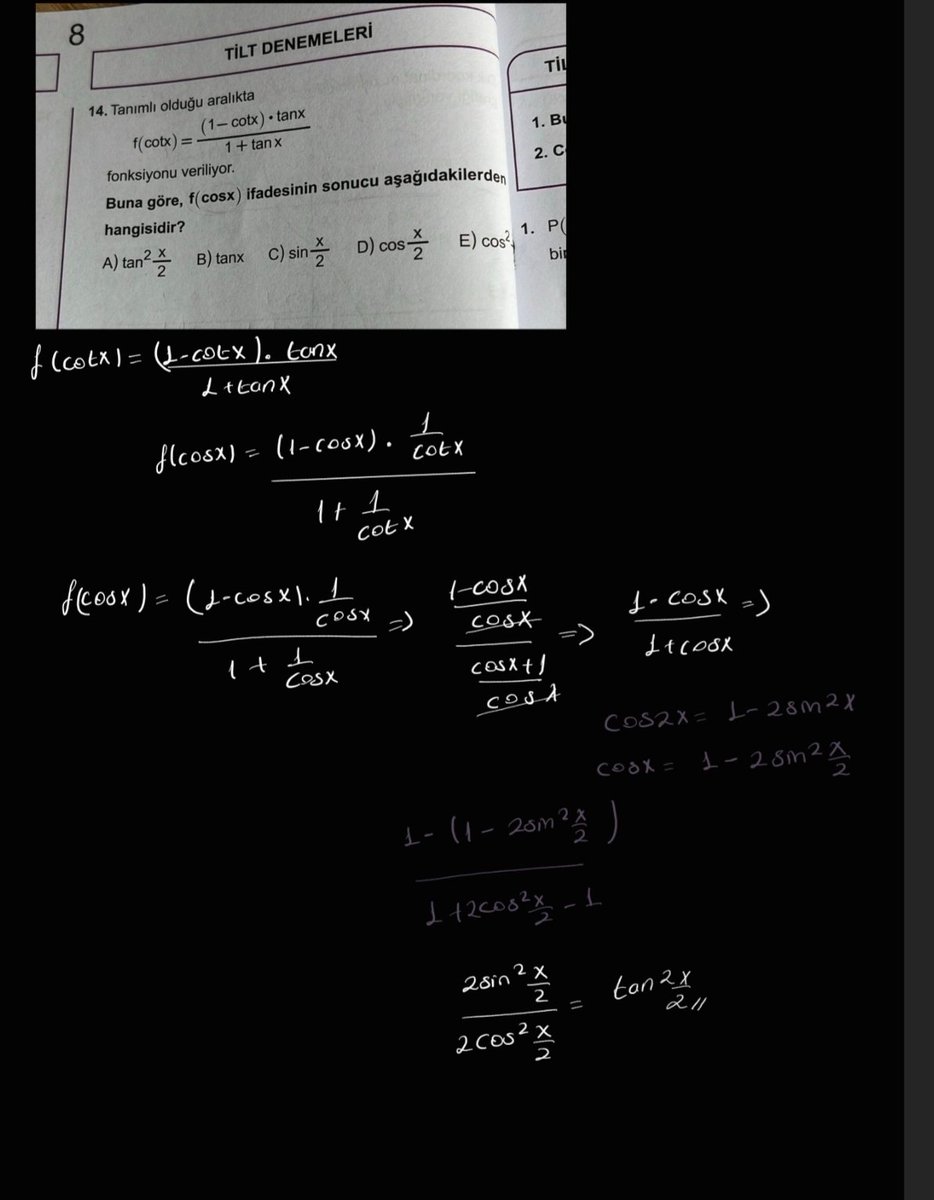 8
TİLT DENEMELERİ
14. Tanımlı olduğu aralıkta
f(cotx) = (1 − cotx) • tanx / 1 + tanx
fonksiyonu veriliyor.
Buna göre, f(cosx) ifadesinin sonucu aşağıdakilerden
hangisidir?
A) tan² x/2 B) tanx C) sin x/2 D) cos x/2 E) cos²
1.
2.
1. P(
f(cotx) = (1-cotx). tanx / 1+tanx
f(cosx) = (1-cosx) . 1/cotx / 1+ 1/cotx
f(cosx) = (1-cosx). 1/cosx / 1 + 1/cosx => 1-cosx/cosx / cosx+1/cosx => 1-cosx / 1+cosx =>
cos2x = 1-2sin2x
cosx = 1-2sin² x/2
1-(1-2sin² x/2) / 1+2cos² x/2 -1
2sin² x/2 / 2cos² x/2 = tan2 x/2 //